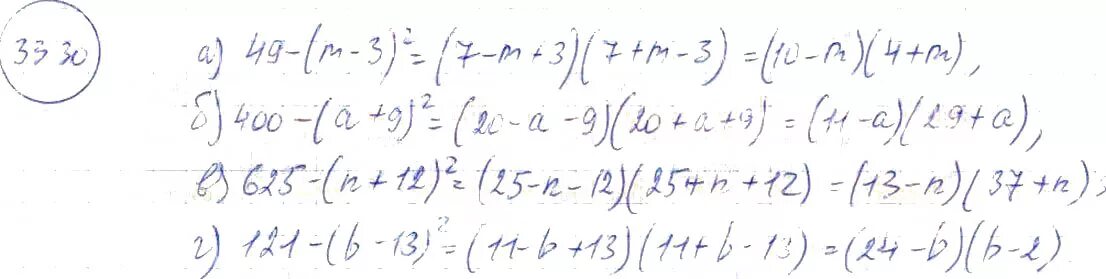 33 30
а) 49-(m-3)²=(7-m+3)(7+m-3)=(10-m)(4+m),
б) 400-(a+9)²=(20-a-9)(20+a+9)=(11-a)(29+a),
в) 625-(n+12)²=(25-n-12)(25+n+12)=(13-n)(37+n);
г) 121-(b-13)²=(11-b+13)(11+b-13)=(24-b)(b-2)